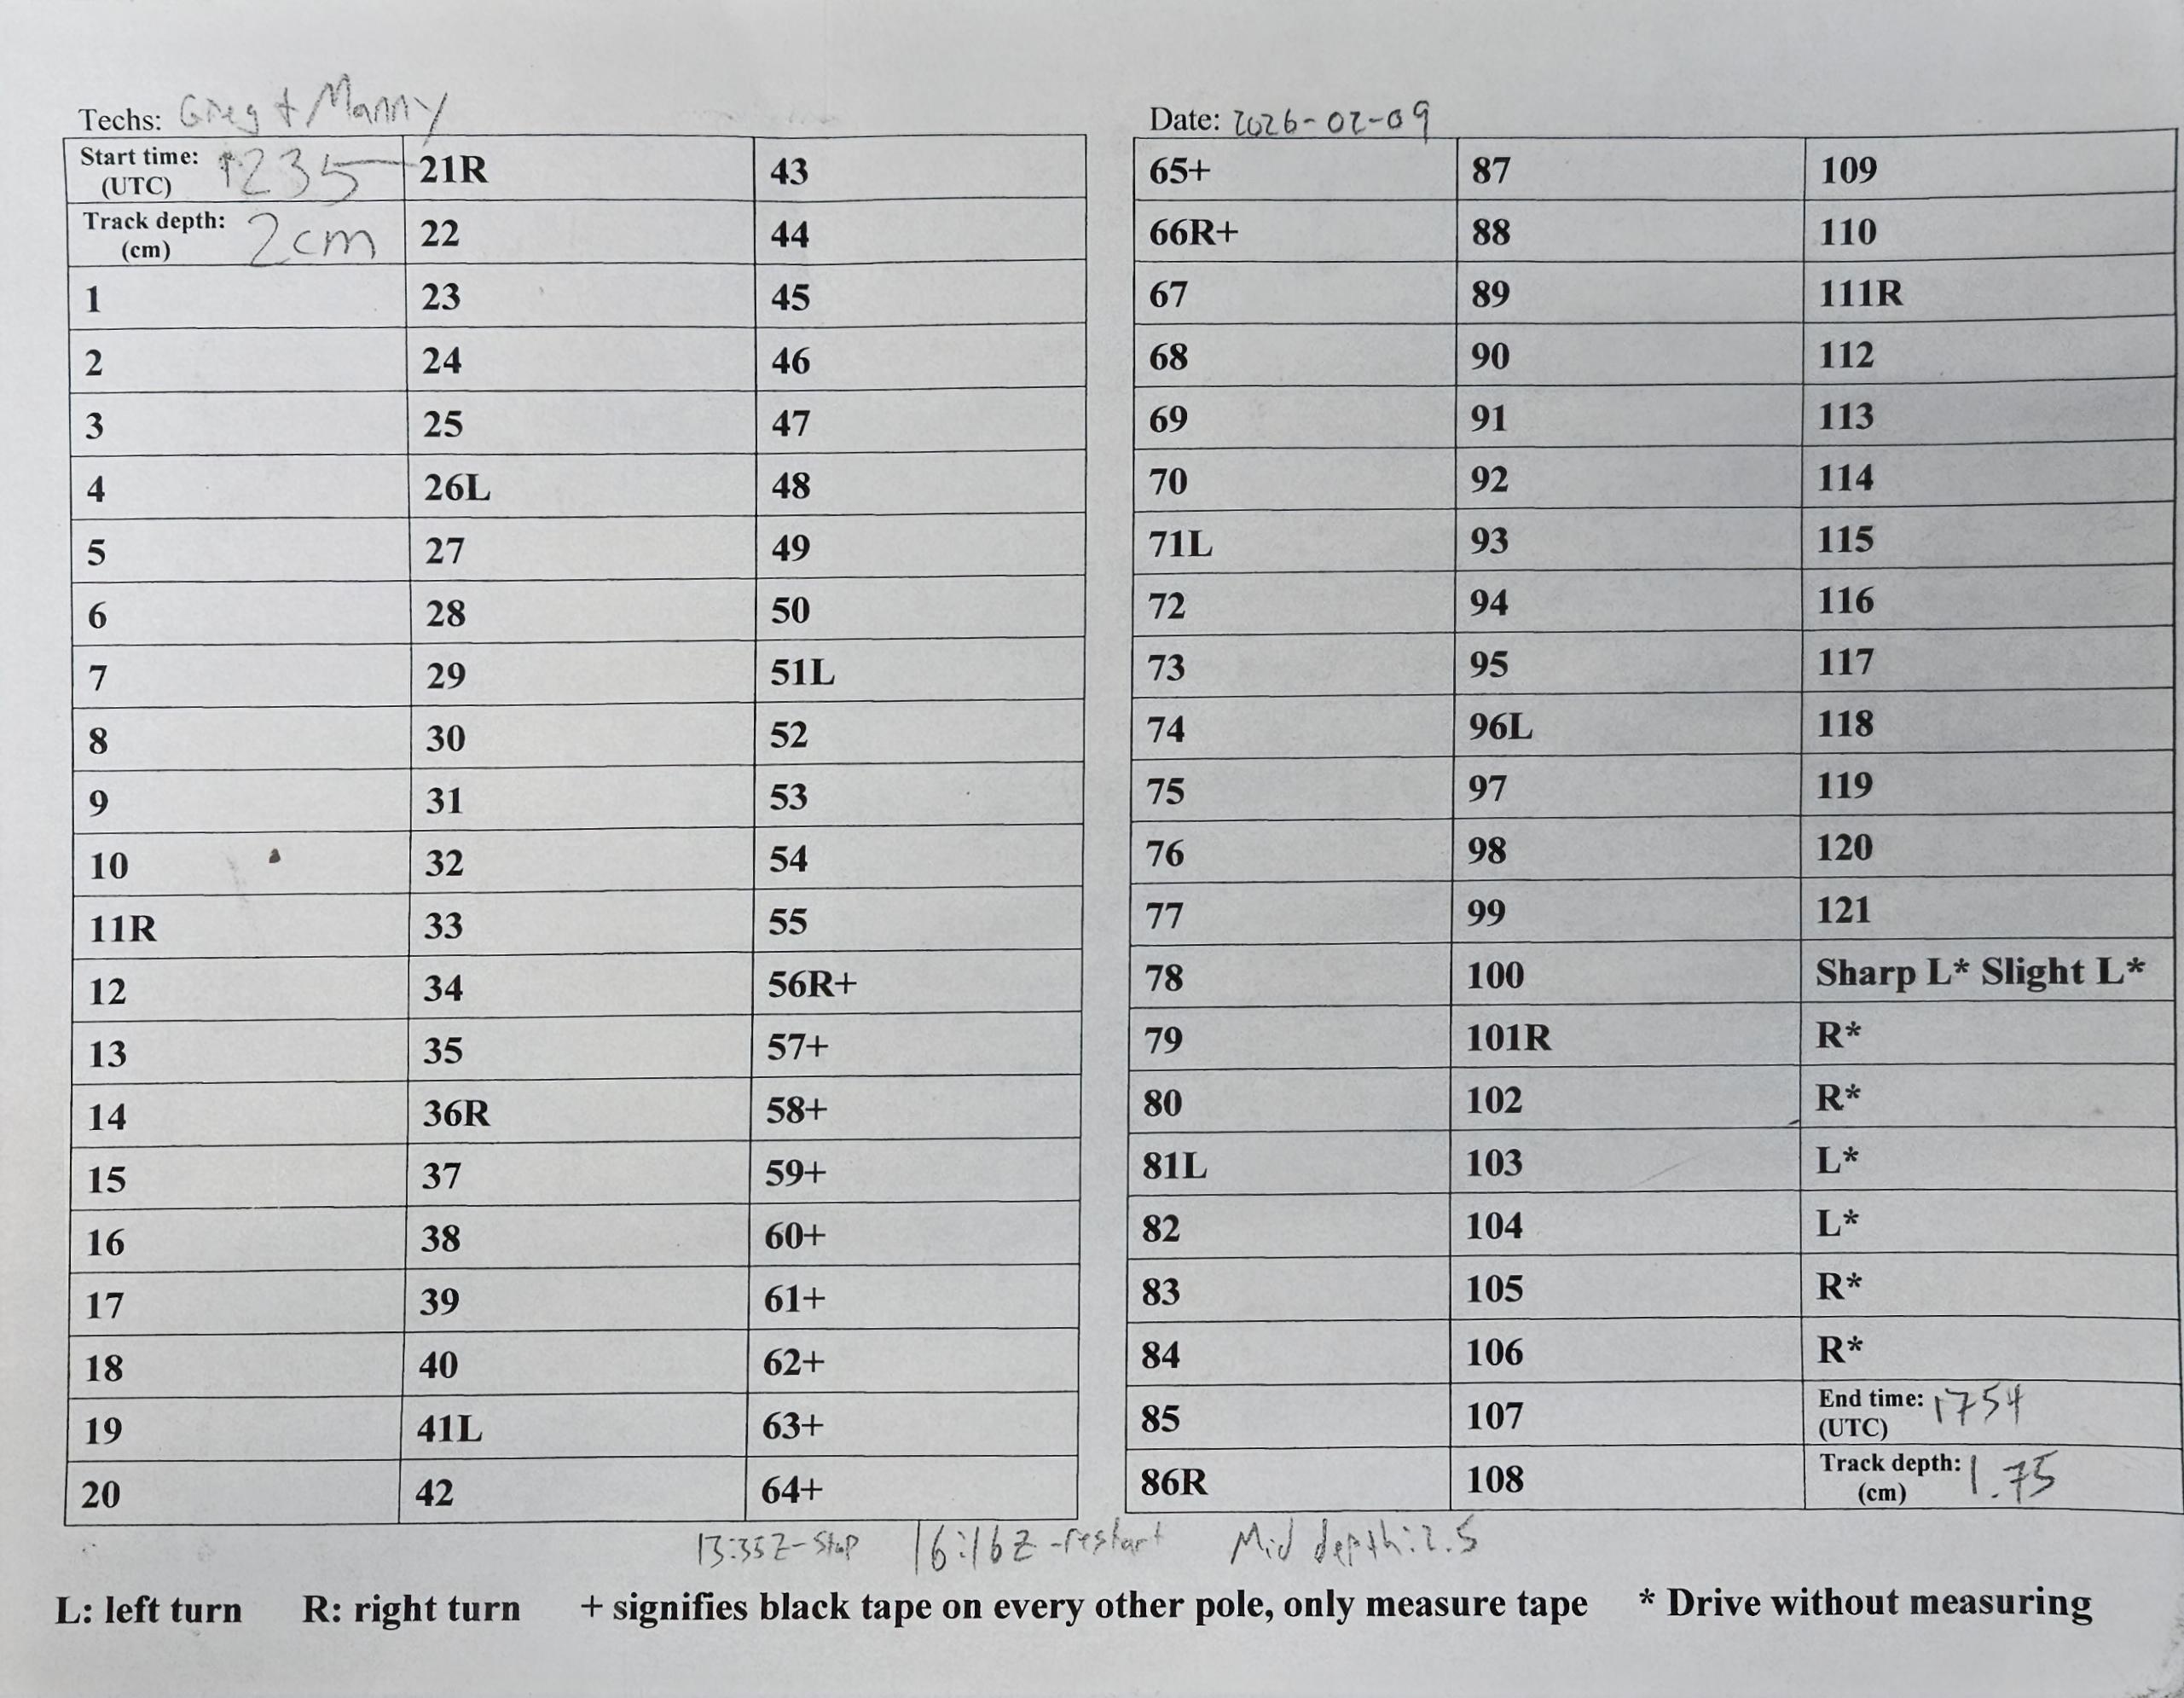 Techs: Greg + Manny
Date: 2026-02-09
Start time: (UTC) 1235
21R
43
Track depth: (cm) 2cm
22
44
1
23
45
2
24
46
3
25
47
4
26L
48
5
27
49
6
28
50
7
29
51L
8
30
52
9
31
53
10
32
54
11R
33
55
12
34
56R+
13
35
57+
14
36R
58+
15
37
59+
16
38
60+
17
39
61+
18
40
62+
19
41L
63+
20
42
64+
65+
87
109
66R+
88
110
67
89
111R
68
90
112
69
91
113
70
92
114
71L
93
115
72
94
116
73
95
117
74
96L
118
75
97
119
76
98
120
77
99
121
78
100
Sharp L* Slight L*
79
101R
R*
80
102
R*
81L
103
L*
82
104
L*
83
105
R*
84
106
R*
85
107
End time: (UTC) 1754
86R
108
Track depth: (cm) 1.75
13:35Z-stop 16:16Z-restart Mid depth: 2.5
L: left turn R: right turn + signifies black tape on every other pole, only measure tape * Drive without measuring